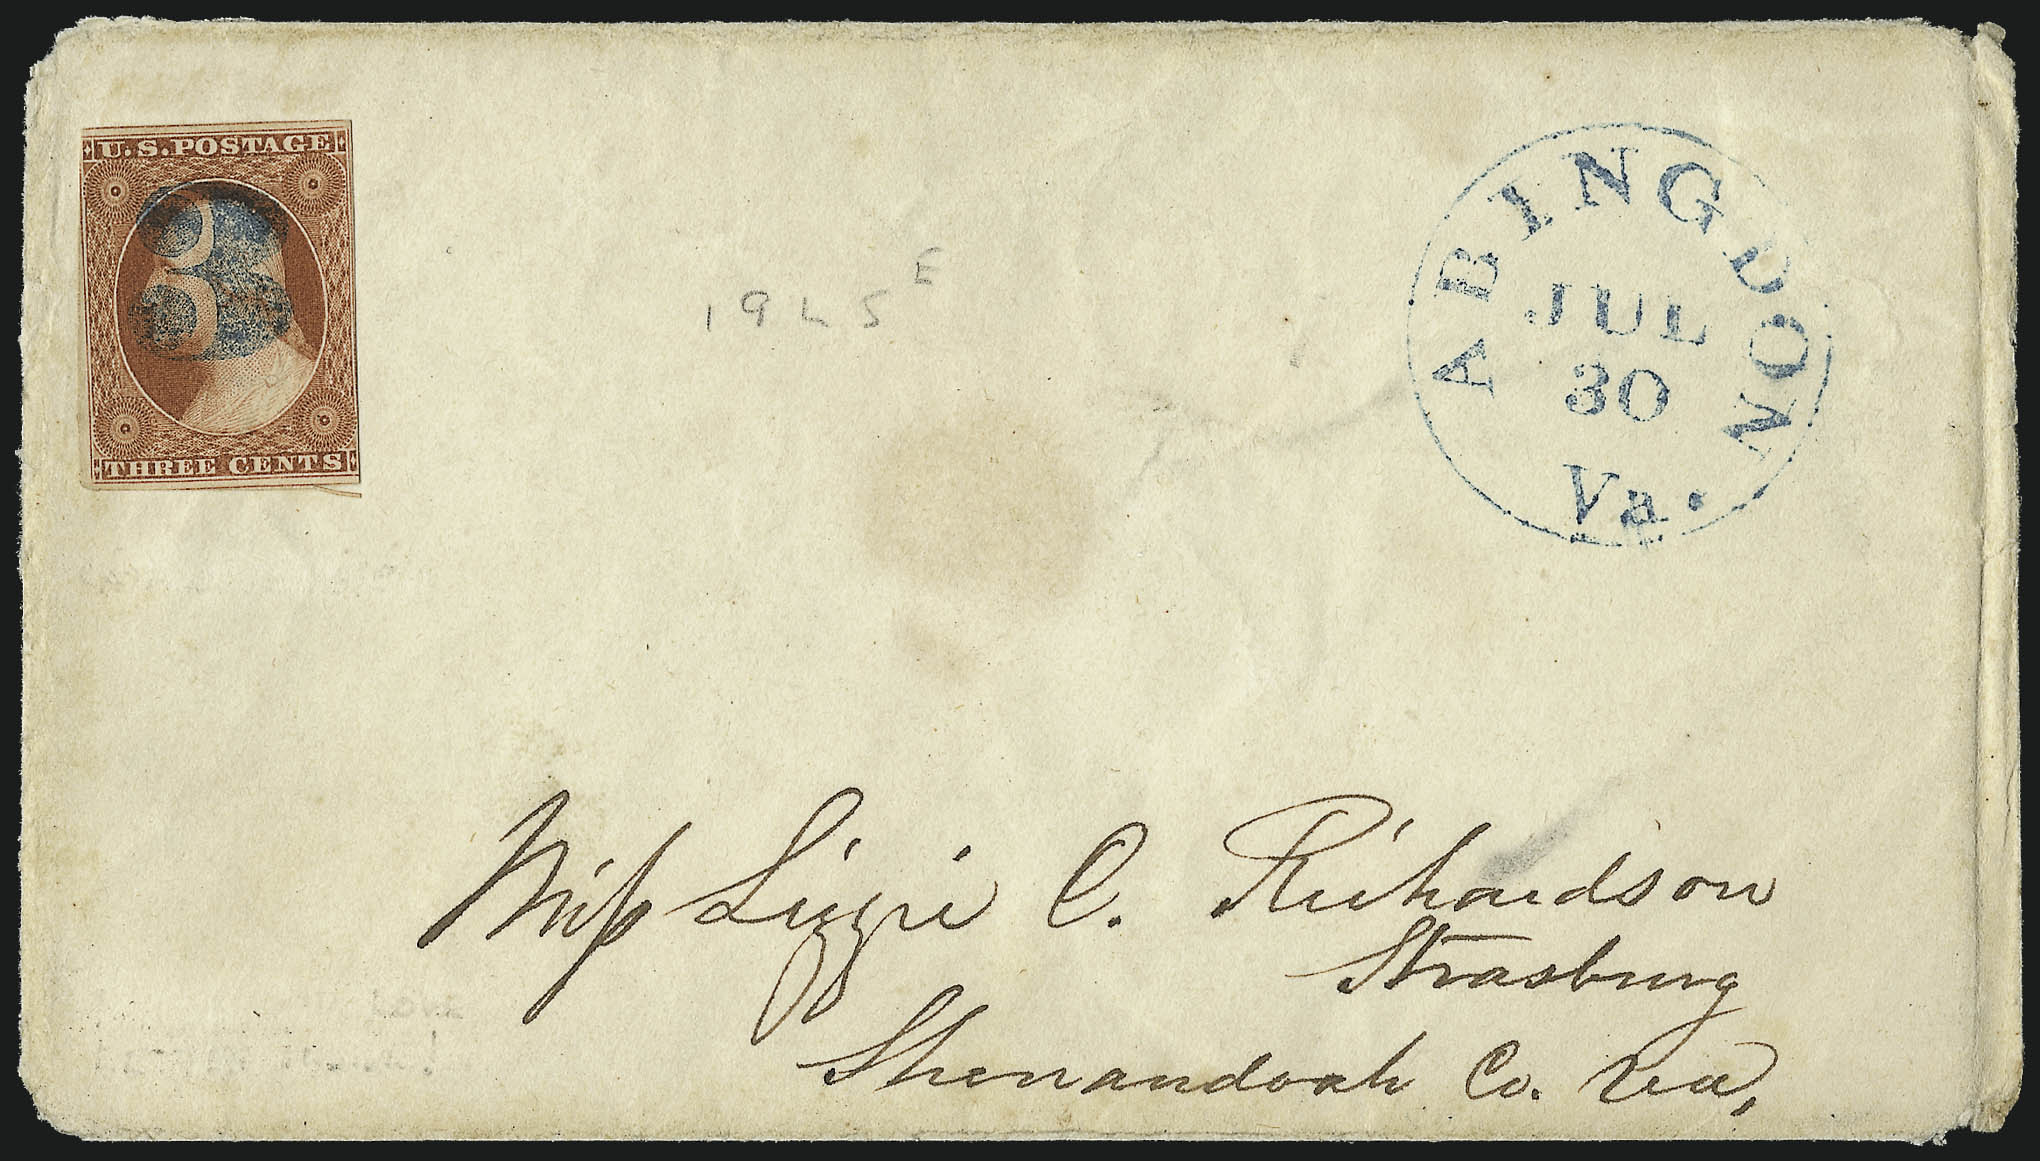 U.S. POSTAGE
THREE CENTS
ABINGDON
JUL
30
Va.
Miss Lizzie C. Richardson
Strasburg
Shenandoah Co. Va,